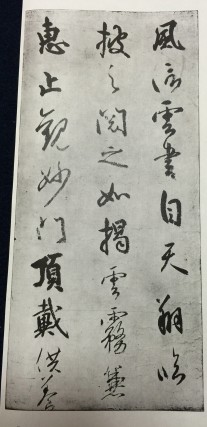 風信雲書自天翔臨
披之閱之如揭雲霧兼
惠止觀妙門頂戴供養